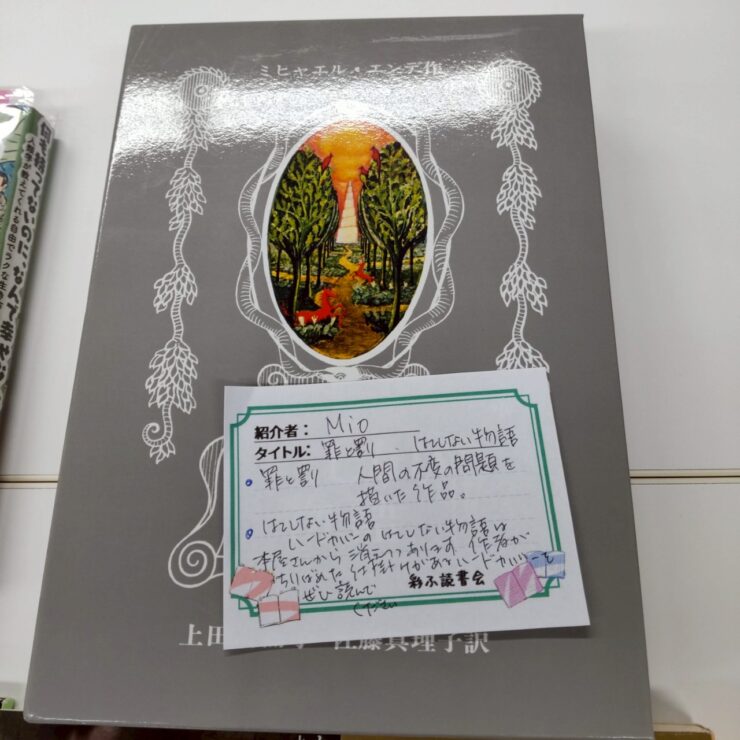 ミヒャエル・エンデ作
紹介者： Mio
タイトル： 罪と罰、はてしない物語
罪と罰 人間の不変の問題を
描いた作品。
はてしない物語
ハードカバーのはてしない物語は
本屋さんから消えつつあります。作者が
ちりばめた仕掛けがあるハードカバーを
ぜひ読んで
ください
彩ふ読書会
上田 佐藤真理子訳
なんて幸せ
人類学が教えてくれる自由でラクな生